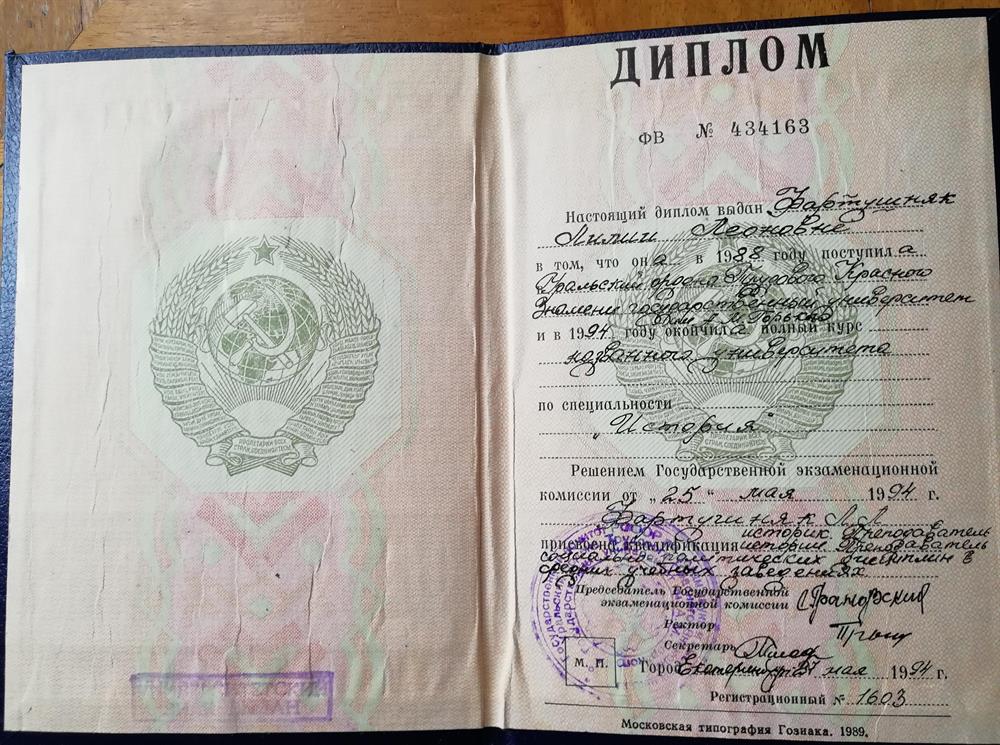 ДИПЛОМ
ФВ № 434163
Настоящий диплом выдан Фартушняк
Лилии Леоновне
в том, что она в 1988 году поступила
Уральский ордена Трудового Красного
Знамени государственный университет
им А М Горького
и в 1994 году окончила полный курс
названного университета
по специальности
"История"
Решением Государственной экзаменационной
комиссии от „25" мая 1994 г.
Фартушняк Л.Л
историк. Преподаватель
присвоена квалификация истории. Преподаватель
социально политических дисциплин в
средних учебных заведениях
Председатель Государственной
экзаменационной комиссии
Ректор
Секретарь
М. П. Город Екатеринбург мая 1994 г.
Регистрационный № 1603
Московская типография Гознака. 1989.
ПРОЛЕТАРИИ ВСЕХ
СТРАН, СОЕДИНЯЙТЕСЬ!